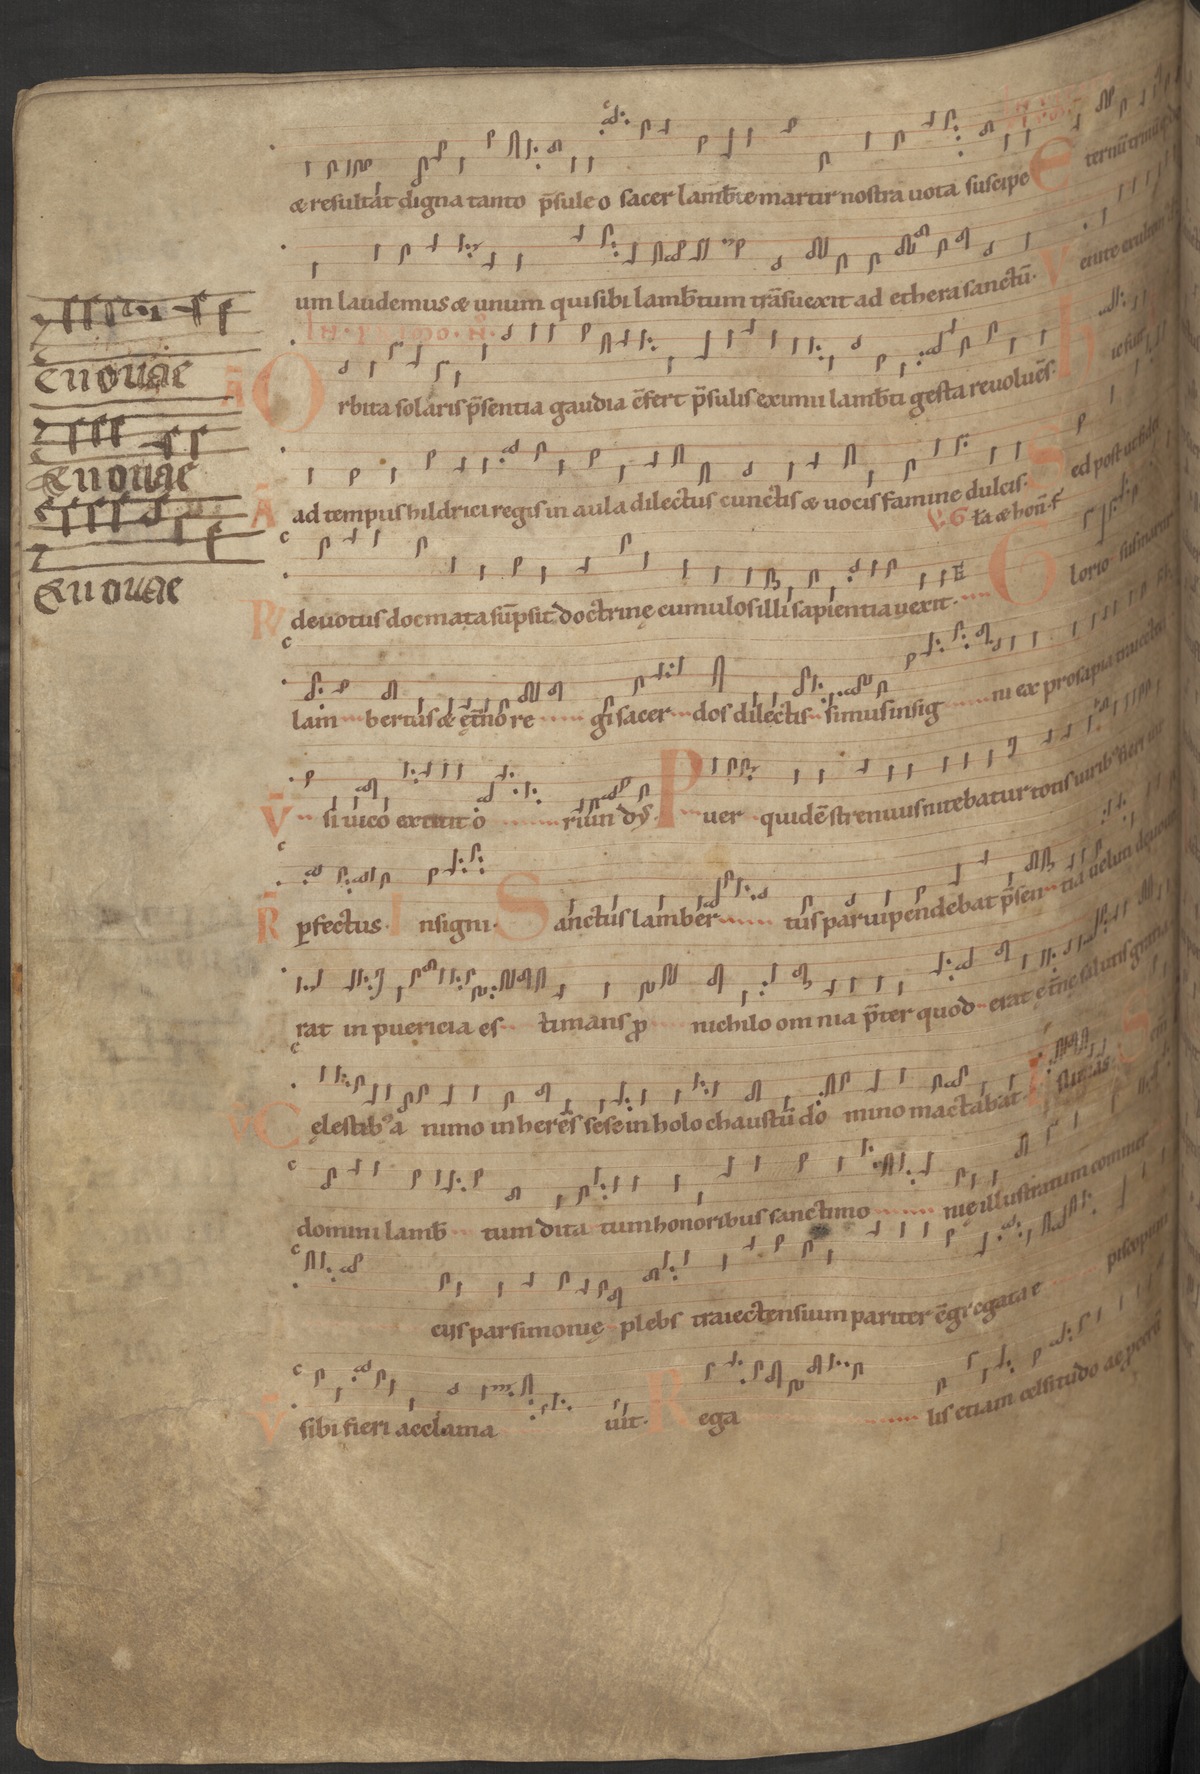 æ resultat digna tanto p̄sule o sacer lamb̄te martir nostra uota suscipe E ternū trinūq
um laudemus æ unum qui sibi lamb̄tum trāsuexit ad ethera sanctū. V enite
Euouae
O rbita solaris p̄sentia gaudia c̄fert p̄sulis eximii lamb̄ti gesta reuoluēs. h
Euouae
ad tempus hildrici regis in aula dilectus cunctis æ uocis famine dulcis. S ed post ut fida
Euouae
deuotus docmata sūpsit doctrinę cumulos illi sapientia uexit. G lorio sus martir
lam bertus æ ęt̄no re gi sacer dos dilectis simus insig ni ex prosapia traiecten
V̄ si uico extitit o riun dꝰ. P uer quidē strenuus nitebatur totis uiribꝰ fieri uir
R̄ ꝑfectus. I nsigni. S anctus lamber tus paruipendebat p̄sen tia uelut
rat in puericia es timans ꝓ nichilo omnia p̄ter quod erat ęt̄nę salutis gratia
V̄ C ęlestibꝰ a nimo inherēs sese in holochaustū do mino mactabat. Estimās. S
domini lamb̄ tum dita tum honoribus sanctimo nię illustratum commer
cijs parsimonię plebs traiectensium pariter c̄gregata e piscopum
V̄ sibi fieri acclama uit. R ega lis etiam celsitudo ac